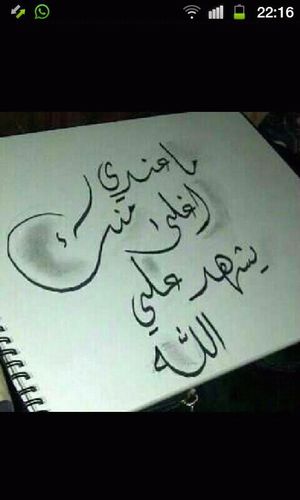 22:16
ما عندي
اغلى منك
يشهد علي
الله